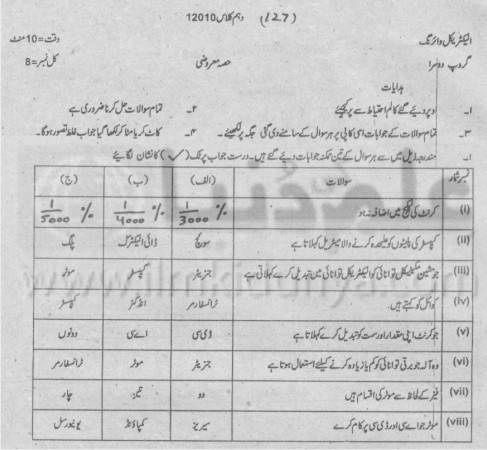 (127) دہم کلاس 12010
الیکٹریکل وائرنگ وقت=10منٹ
گروپ دوسرا حصہ معروضی کل نمبر=8
ہدایات
۱۔ اوپر دئیے گئے کالم احتیاط سے پر کیجئے ۲۔ تمام سوالات حل کرنا ضروری ہے
۳۔ تمام سوالات کے جوابات اسی کاپی پر ہر سوال کے سامنے دی گئی جگہ پر لکھیئے۔ ۴۔ کاٹ کر یا مٹا کر لکھا گیا جواب غلط تصور ہوگا۔
۱۔ مندرجہ ذیل میں سے ہر سوال کے تین ممکنہ جوابات دیئے گئے ہیں۔ درست جواب پر ٹک (✓) کا نشان لگائیے
نمبر شمار سوالات (الف) (ب) (ج)
(i) کرنٹ کی لیکیج میں اضافہ نہ ہو 1/3000 % 1/4000 % 1/5000 %
(ii) کپسٹر کی پلیٹوں کو علیحدہ کرنے والا میٹریل کہلاتا ہے سوئچ ڈائی الیکٹرک پلگ
(iii) جو مشین مکینیکل توانائی کو الیکٹریکل توانائی میں تبدیل کرے کہلاتی ہے جنریٹر کپسٹر موٹر
(iv) کوائل کو کہتے ہیں۔ ٹرانسفارمر انڈکٹر کپسٹر
(v) جو کرنٹ اپنی مقدار اور سمت کو تبدیل کرے کہلاتا ہے ڈی سی اے سی دونوں
(vi) وہ آلہ جو برقی توانائی کو کم یا زیادہ کرنے کیلئے استعمال ہوتا ہے جنریٹر موٹر ٹرانسفارمر
(vii) فیز کے لحاظ سے موٹر کی اقسام ہیں دو تین چار
(viii) موٹر جو اے سی اور ڈی سی پر کام کرے سیریز کمپاؤنڈ یونیورسل